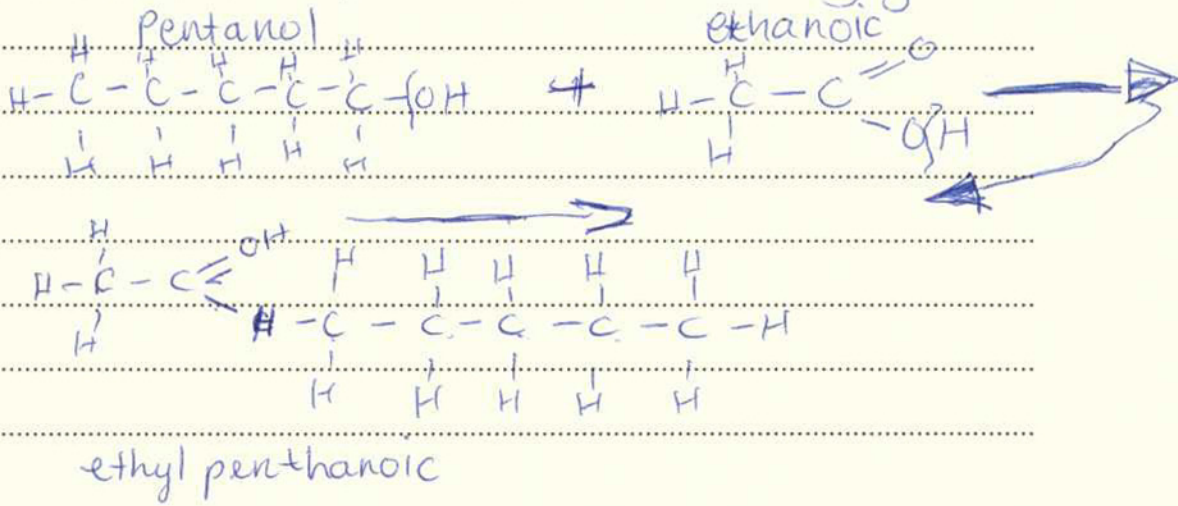 Pentanol ethanoic
H H H H H H
H-C-C-C-C-C-OH + H-C-C=O
H H H H H H -OH
H OH H H H H H
H-C-C= -C-C-C-C-C-H
H H H H H H
ethyl penthanoic